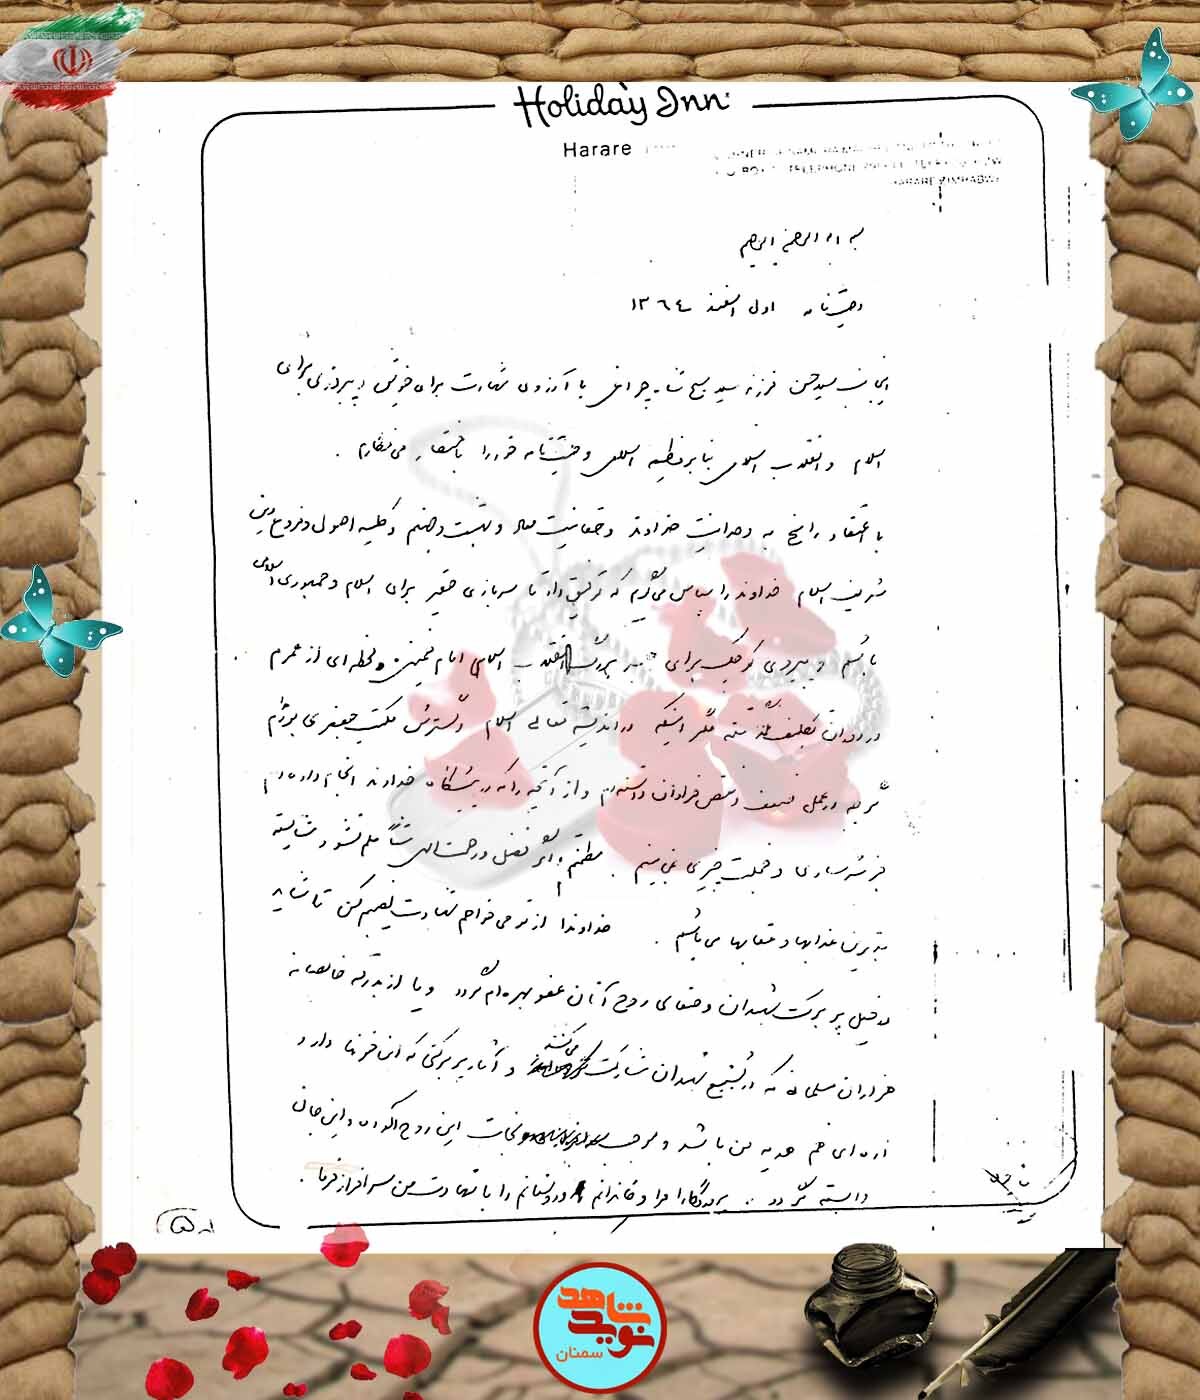 Holiday Inn
Harare
بسم الله الرحمن الرحیم
وصیتنامه اول اسفند ۱۳۶۴
اینجانب سید حسن فرزند سید مسیح شاهچراغی با آرزوی شهادت برای خویش و پیروزی برای
اسلام و انقلاب اسلامی بنا بر وظیفه اسلامی وصیتنامه خود را باختصار می‌نگارم .
با اعتقاد راسخ به وحدانیت خداوند و حقانیت معاد و بهشت و جهنم و کلیه اصول و فروع دین
شریف اسلام خداوند را سپاس می‌گویم که توفیق داد تا سربازی حقیر برای اسلام و جمهوری اسلامی
باشم و پیروی کوچک برای رهبر بزرگ انقلاب اسلامی امام خمینی و لحظه‌ای از عمرم
در دوران تکلیف نگذشته مگر اینکه در اندیشه تعالی اسلام و گسترش مکتب جعفری بوده‌ام
گرچه در عمل ضعف و نقص فراوان داشته‌ام و از آنچه را که در پیشگاه خداوند انجام داده‌ام
جز شرمساری و خجلت چیزی نمی‌بینم . مطمئنم اگر فضل و رحمت الهی شامل نشود شایسته
بدترین عذابها و عقابها می‌باشم . خداوندا از تو می‌خواهم شهادت نصیبم کن تا شاید
دخیل پر برکت شهیدان و صفای روح آنان عفو بهره‌ام گردد و یا از بدرقه خالصانه
هزاران مسلمان که در تشییع شهیدان شرکت می‌کنند و آثار پر برکتی که این خونها دارد
ذره‌ای هم هدیه من باشد و موجب نجات این روح آلوده و این جان
وابسته گردد . پروردگارا مرا و خاندانم و دوستانم را با شهادت من سرافراز فرما .
شاهد
نوید
سمنان